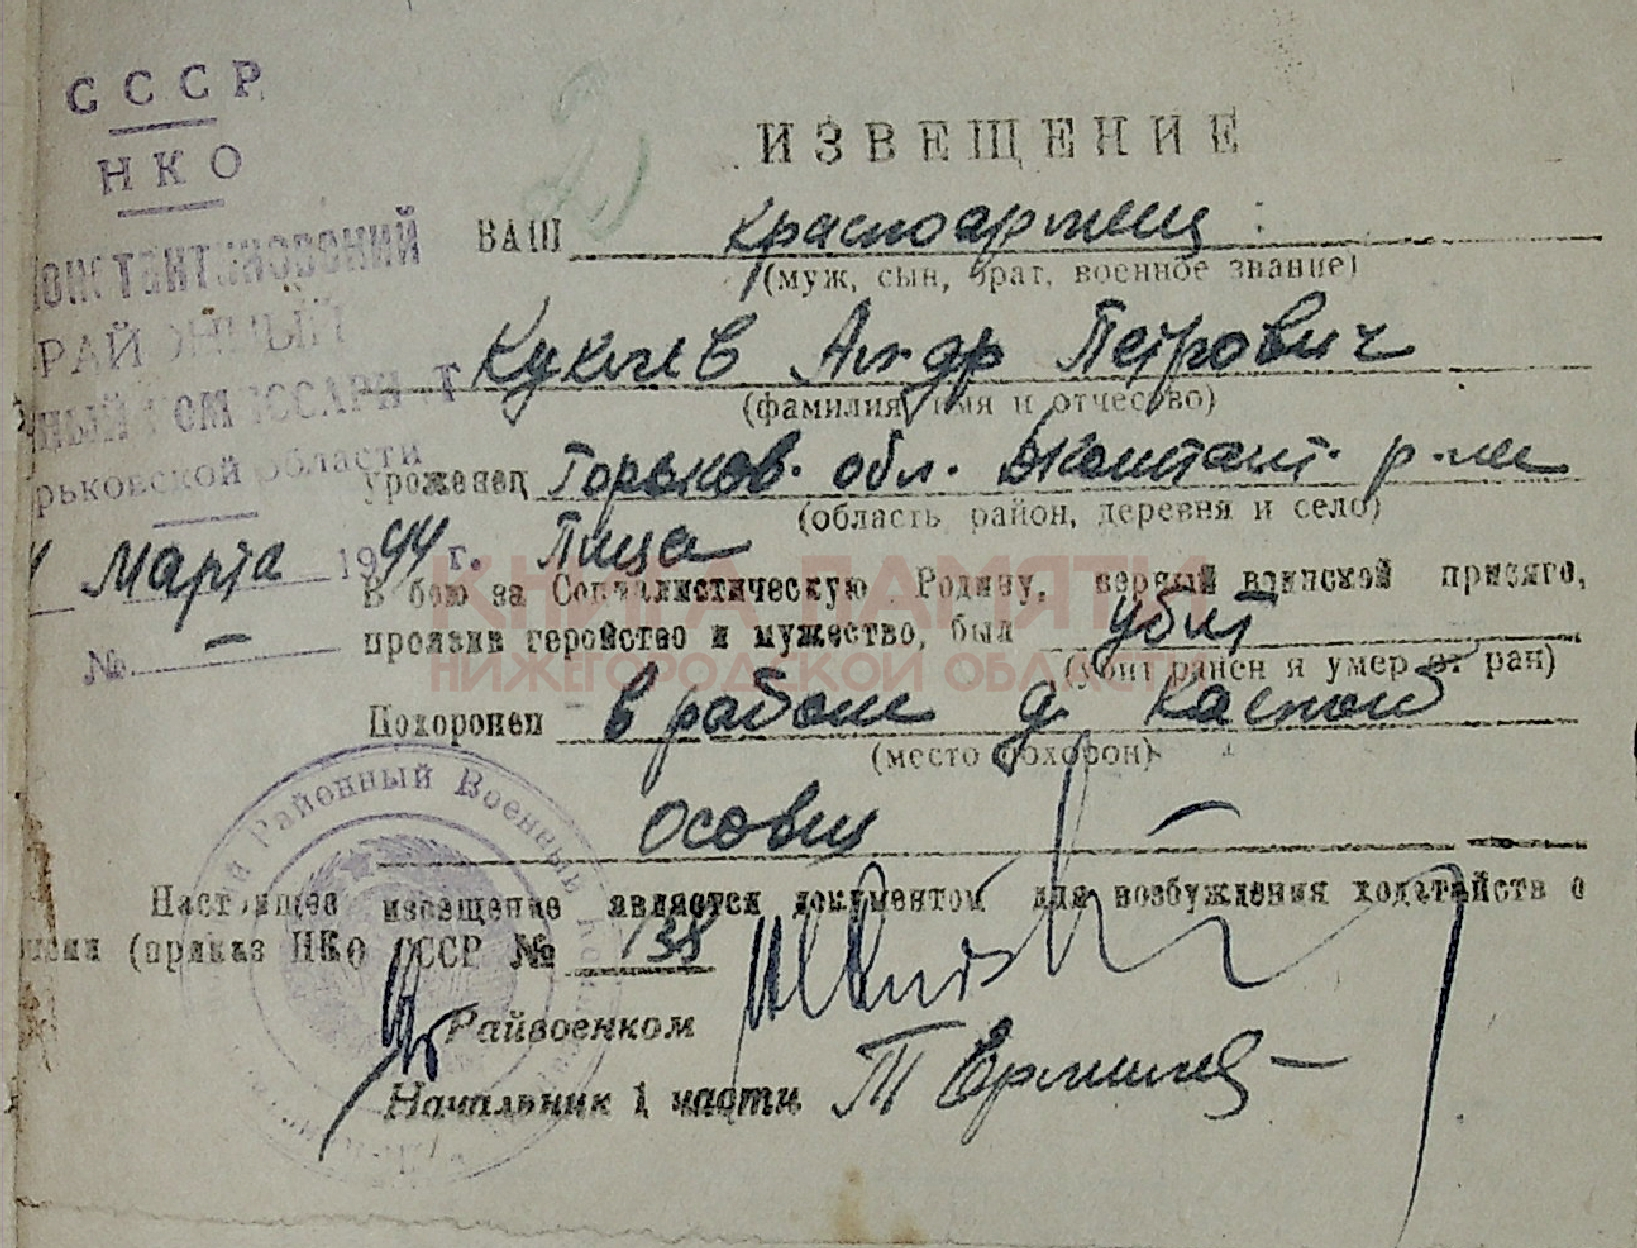 СССР
НКО
КОНСТАНТИНОВСКИЙ
РАЙОННЫЙ
НЫЙ КОМИССАРИАТ
рьковской области
Марта 1944 г.
№ —
2)
ИЗВЕЩЕНИЕ
ВАШ красноармеец
(муж, сын, брат, военное звание)
Петрович
(фамилия, имя и отчество)
уроженец Горьков. обл. р-на
(область район, деревня и село)
В бою за Социалистическую Родину, верный воинской присяге,
проявив геройство и мужество, был убит
(убит ранен и умер от ран)
Похоронен в районе д.
(место похорон)
Осовец
Настоящее извещение является документом для возбуждения ходатайств о
пенсии (приказ НКО СССР № 138
Райвоенком
Начальник 1 части
Районный Военный
КНИГА ПАМЯТИ
НИЖЕГОРОДСКОЙ ОБЛАСТИ